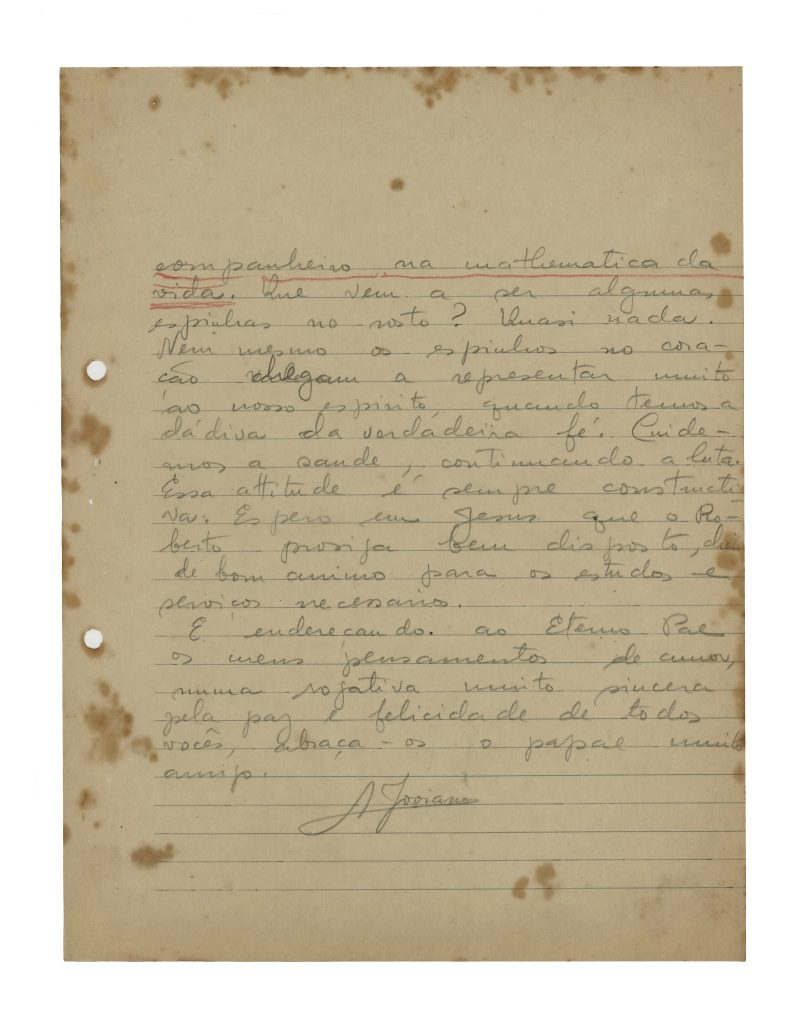 companheiro na mathematica da
vida. Que vem a ser algumas
espinhas no rosto? Quasi nada.
Nem mesmo os espinhos no cora-
ção chegam a representar muito
ao nosso espirito, quando temos a
dádiva da verdadeira fé. Cuide-
mos a saude, continuando a luta.
Essa attitude é sempre constructi-
va. Espero em Jesus que o Ro-
berto prosiga bem disposto, cheio
de bom animo para os estudos e
serviços necessarios.
E endereçando. ao Eterno Pae
os meus pensamentos de amor,
numa rogativa muito sincera
pela paz e felicidade de todos
vocês, abraça-os o papae muito
amigo.
A Joviano